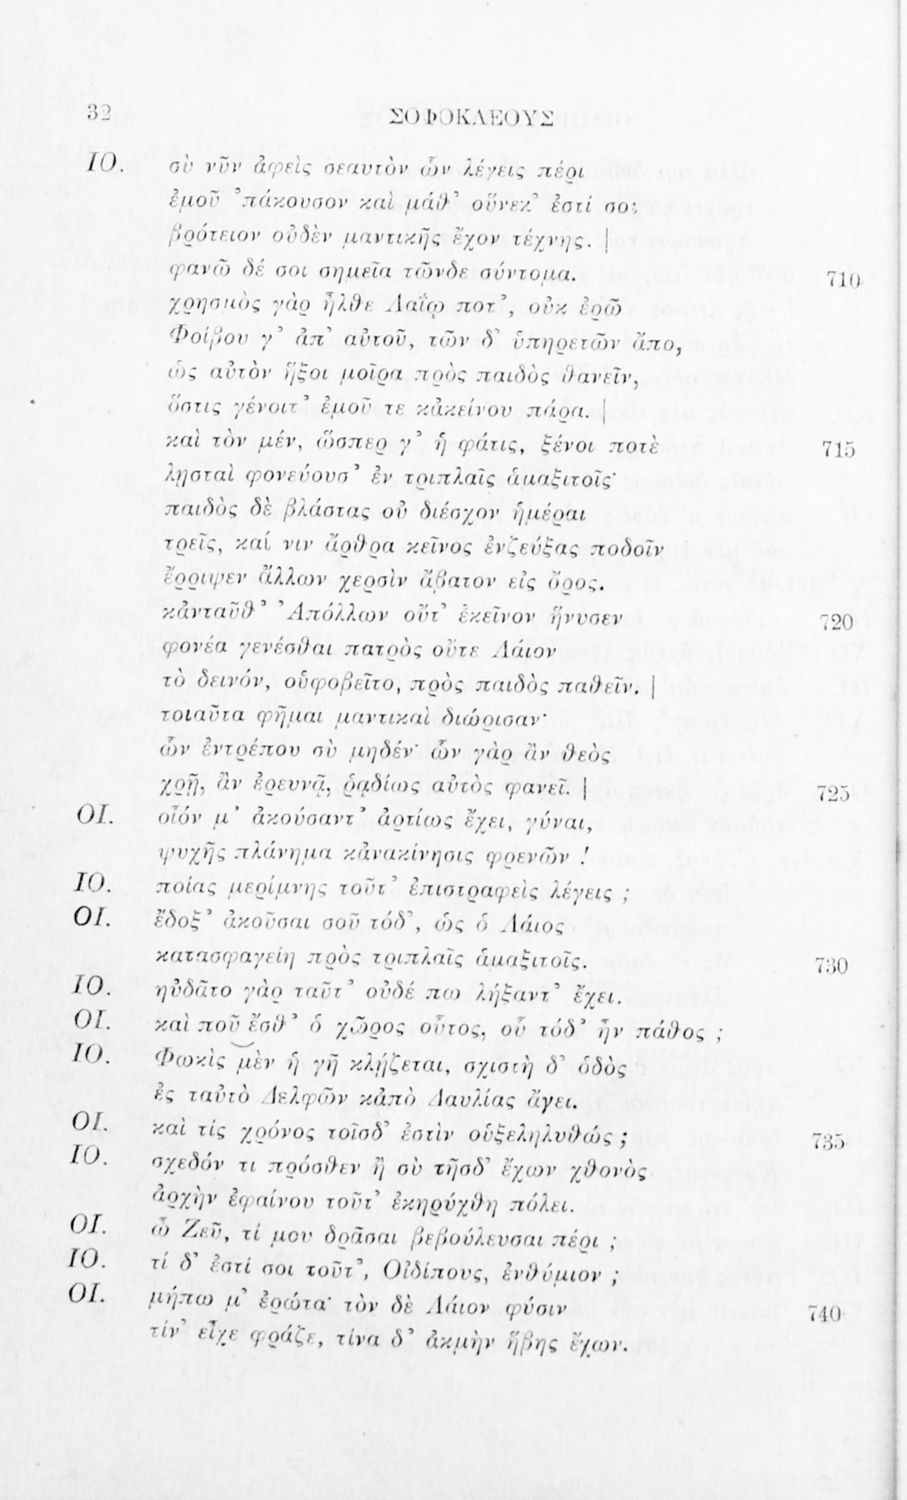 32 ΣΟΦΟΚΛΕΟΥΣ
ΙΟ. σὺ νῦν ἀφεὶς σεαυτὸν ὧν λέγεις πέρι
ἐμοῦ ᾽πάκουσον καὶ μάθ᾽ οὕνεκ᾽ ἐστί σοι
βρότειον οὐδὲν μαντικῆς ἔχον τέχνης. |
φανῶ δέ σοι σημεῖα τῶνδε σύντομα. 710
χρησμὸς γὰρ ἦλθε Λαΐῳ ποτ᾽, οὐκ ἐρῶ
Φοίβου γ᾽ ἀπ᾽ αὐτοῦ, τῶν δ᾽ ὑπηρετῶν ἄπο,
ὡς αὐτὸν ἥξοι μοῖρα πρὸς παιδὸς θανεῖν,
ὅστις γένοιτ᾽ ἐμοῦ τε κἀκείνου πάρα. |
καὶ τὸν μέν, ὥσπερ γ᾽ ἡ φάτις, ξένοι ποτὲ 715
λῃσταὶ φονεύουσ᾽ ἐν τριπλαῖς ἁμαξιτοῖς·
παιδὸς δὲ βλάστας οὐ διέσχον ἡμέραι
τρεῖς, καί νιν ἄρθρα κεῖνος ἐνζεύξας ποδοῖν
ἔρριψεν ἄλλων χερσὶν ἄβατον εἰς ὄρος.
κἀνταῦθ᾽ Ἀπόλλων οὔτ᾽ ἐκεῖνον ἤνυσεν 720
φονέα γενέσθαι πατρὸς οὔτε Λάιον
τὸ δεινόν, οὑφοβεῖτο, πρὸς παιδὸς παθεῖν. |
τοιαῦτα φῆμαι μαντικαὶ διώρισαν·
ὧν ἐντρέπου σὺ μηδέν· ὧν γὰρ ἂν θεὸς
χρῇ, ἂν ἐρευνᾷ, ῥᾳδίως αὐτὸς φανεῖ. | 725
ΟΙ. οἷόν μ᾽ ἀκούσαντ᾽ ἀρτίως ἔχει, γύναι,
ψυχῆς πλάνημα κἀνακίνησις φρενῶν !
ΙΟ. ποίας μερίμνης τοῦτ᾽ ἐπιστραφεὶς λέγεις ;
ΟΙ. ἔδοξ᾽ ἀκοῦσαι σοῦ τόδ᾽, ὡς ὁ Λάιος
κατασφαγείη πρὸς τριπλαῖς ἁμαξιτοῖς. 730
ΙΟ. ηὐδᾶτο γὰρ ταῦτ᾽ οὐδέ πω λήξαντ᾽ ἔχει.
ΟΙ. καὶ ποῦ ἔσθ᾽ ὁ χῶρος οὗτος, οὗ τόδ᾽ ἦν πάθος ;
ΙΟ. Φωκὶς μὲν ἡ γῆ κλῄζεται, σχιστὴ δ᾽ ὁδὸς
ἐς ταὐτὸ Δελφῶν κἀπὸ Δαυλίας ἄγει.
ΟΙ. καὶ τίς χρόνος τοῖσδ᾽ ἐστὶν οὑξεληλυθώς ; 735
ΙΟ. σχεδόν τι πρόσθεν ἢ σὺ τῆσδ᾽ ἔχων χθονὸς
ἀρχὴν ἐφαίνου τοῦτ᾽ ἐκηρύχθη πόλει.
ΟΙ. ὦ Ζεῦ, τί μου δρᾶσαι βεβούλευσαι πέρι ;
ΙΟ. τί δ᾽ ἐστί σοι τοῦτ᾽, Οἰδίπους, ἐνθύμιον ;
ΟΙ. μήπω μ᾽ ἐρώτα· τὸν δὲ Λάιον φύσιν 740
τίν᾽ εἶχε φράζε, τίνα δ᾽ ἀκμὴν ἥβης ἔχων.